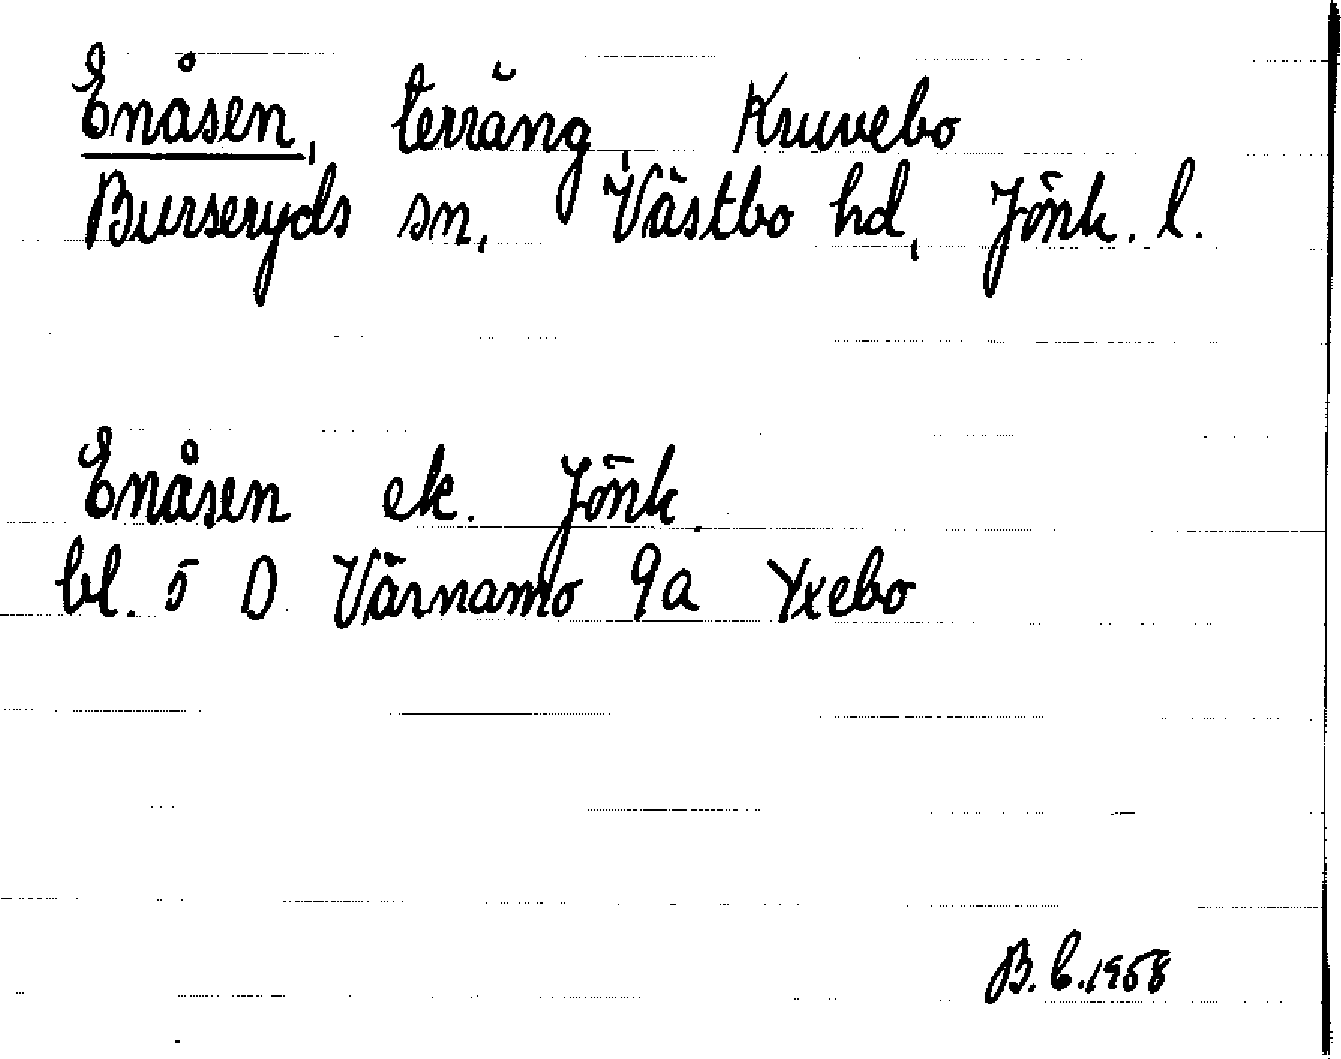 Enåsen, terräng, Kruvebo
Burseryds sn, Västbo hd, Jönk. l.
Enåsen ek. Jönk.
bl. 5 D Värnamo 9a Yxebo
B. E. 1958